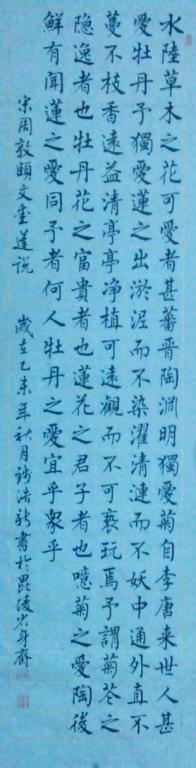 水陸草木之花可愛者甚蕃晉陶淵明獨愛菊自李唐来世人甚
愛牡丹予獨愛蓮之出淤泥而不染濯清漣而不妖中通外直不
蔓不枝香遠益清亭亭净植可遠觀而不可褻玩焉予謂菊花之
隐逸者也牡丹花之富貴者也蓮花之君子者也噫菊之愛陶後
鮮有聞蓮之愛同予者何人牡丹之愛宜乎衆乎
宋周敦頤文愛蓮説 歲在乙未年秋月浩新書於毘陵齋